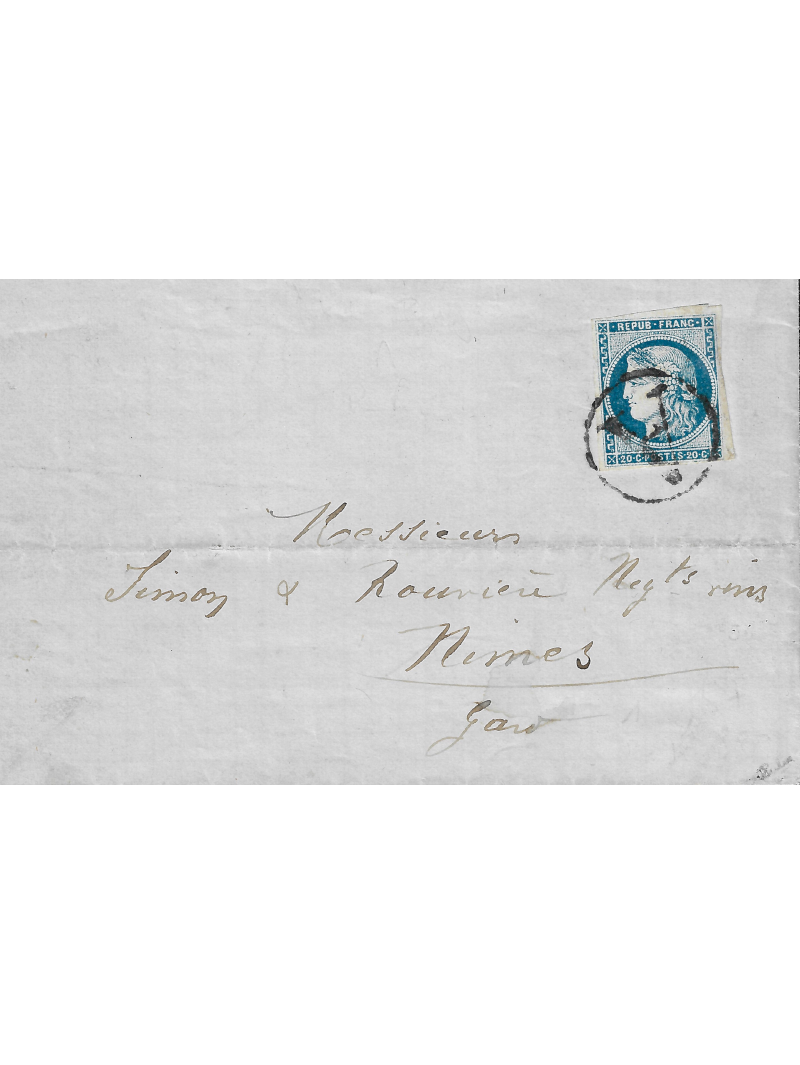 REPUB · FRANC
20 · C · POSTES · 20 · C
Messieurs
Simon & Rouvière Negts vins
Nimes
Gard